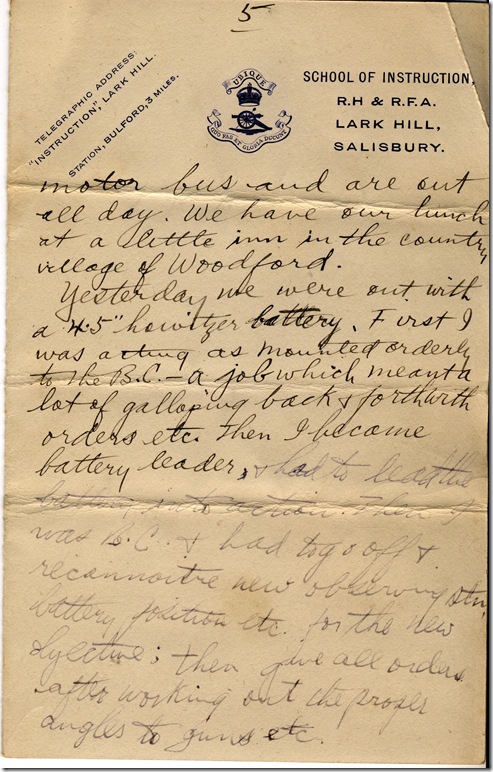 5
TELEGRAPHIC ADDRESS:
"INSTRUCTION," LARK HILL.
STATION, BULFORD, 3 MILES.
UBIQUE
QUO FAS ET GLORIA DUCUNT
SCHOOL OF INSTRUCTION,
R.H & R.F.A.
LARK HILL,
SALISBURY.
motor bus and are out
all day. We have our lunch
at a little inn in the country
village of Woodford.
Yesterday we were out with
a 4.5" howitzer battery. First I
was acting as mounted orderly
to the B.C. – a job which meant a
lot of galloping back & forth with
orders etc. Then I became
battery leader, & had to lead the
battery into action. Then I
was B.C. & had to go off &
reconnoitre new observing stn,
battery position etc. for the new
objective; then give all orders
after working out the proper
angles to guns etc.